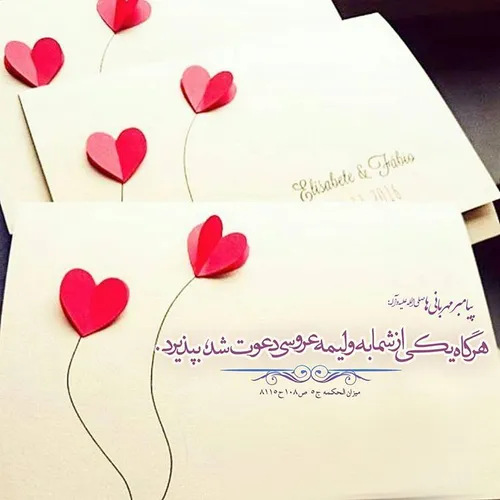 Elisabete & Fábio
2016
پیامبر مهربانی ها صلی الله علیه و آله:
هرگاه یکی از شما به ولیمه عروسی دعوت شد، بپذیرد.
میزان الحکمه ج۵ ص۱۰۸ ح۸۱۱۵